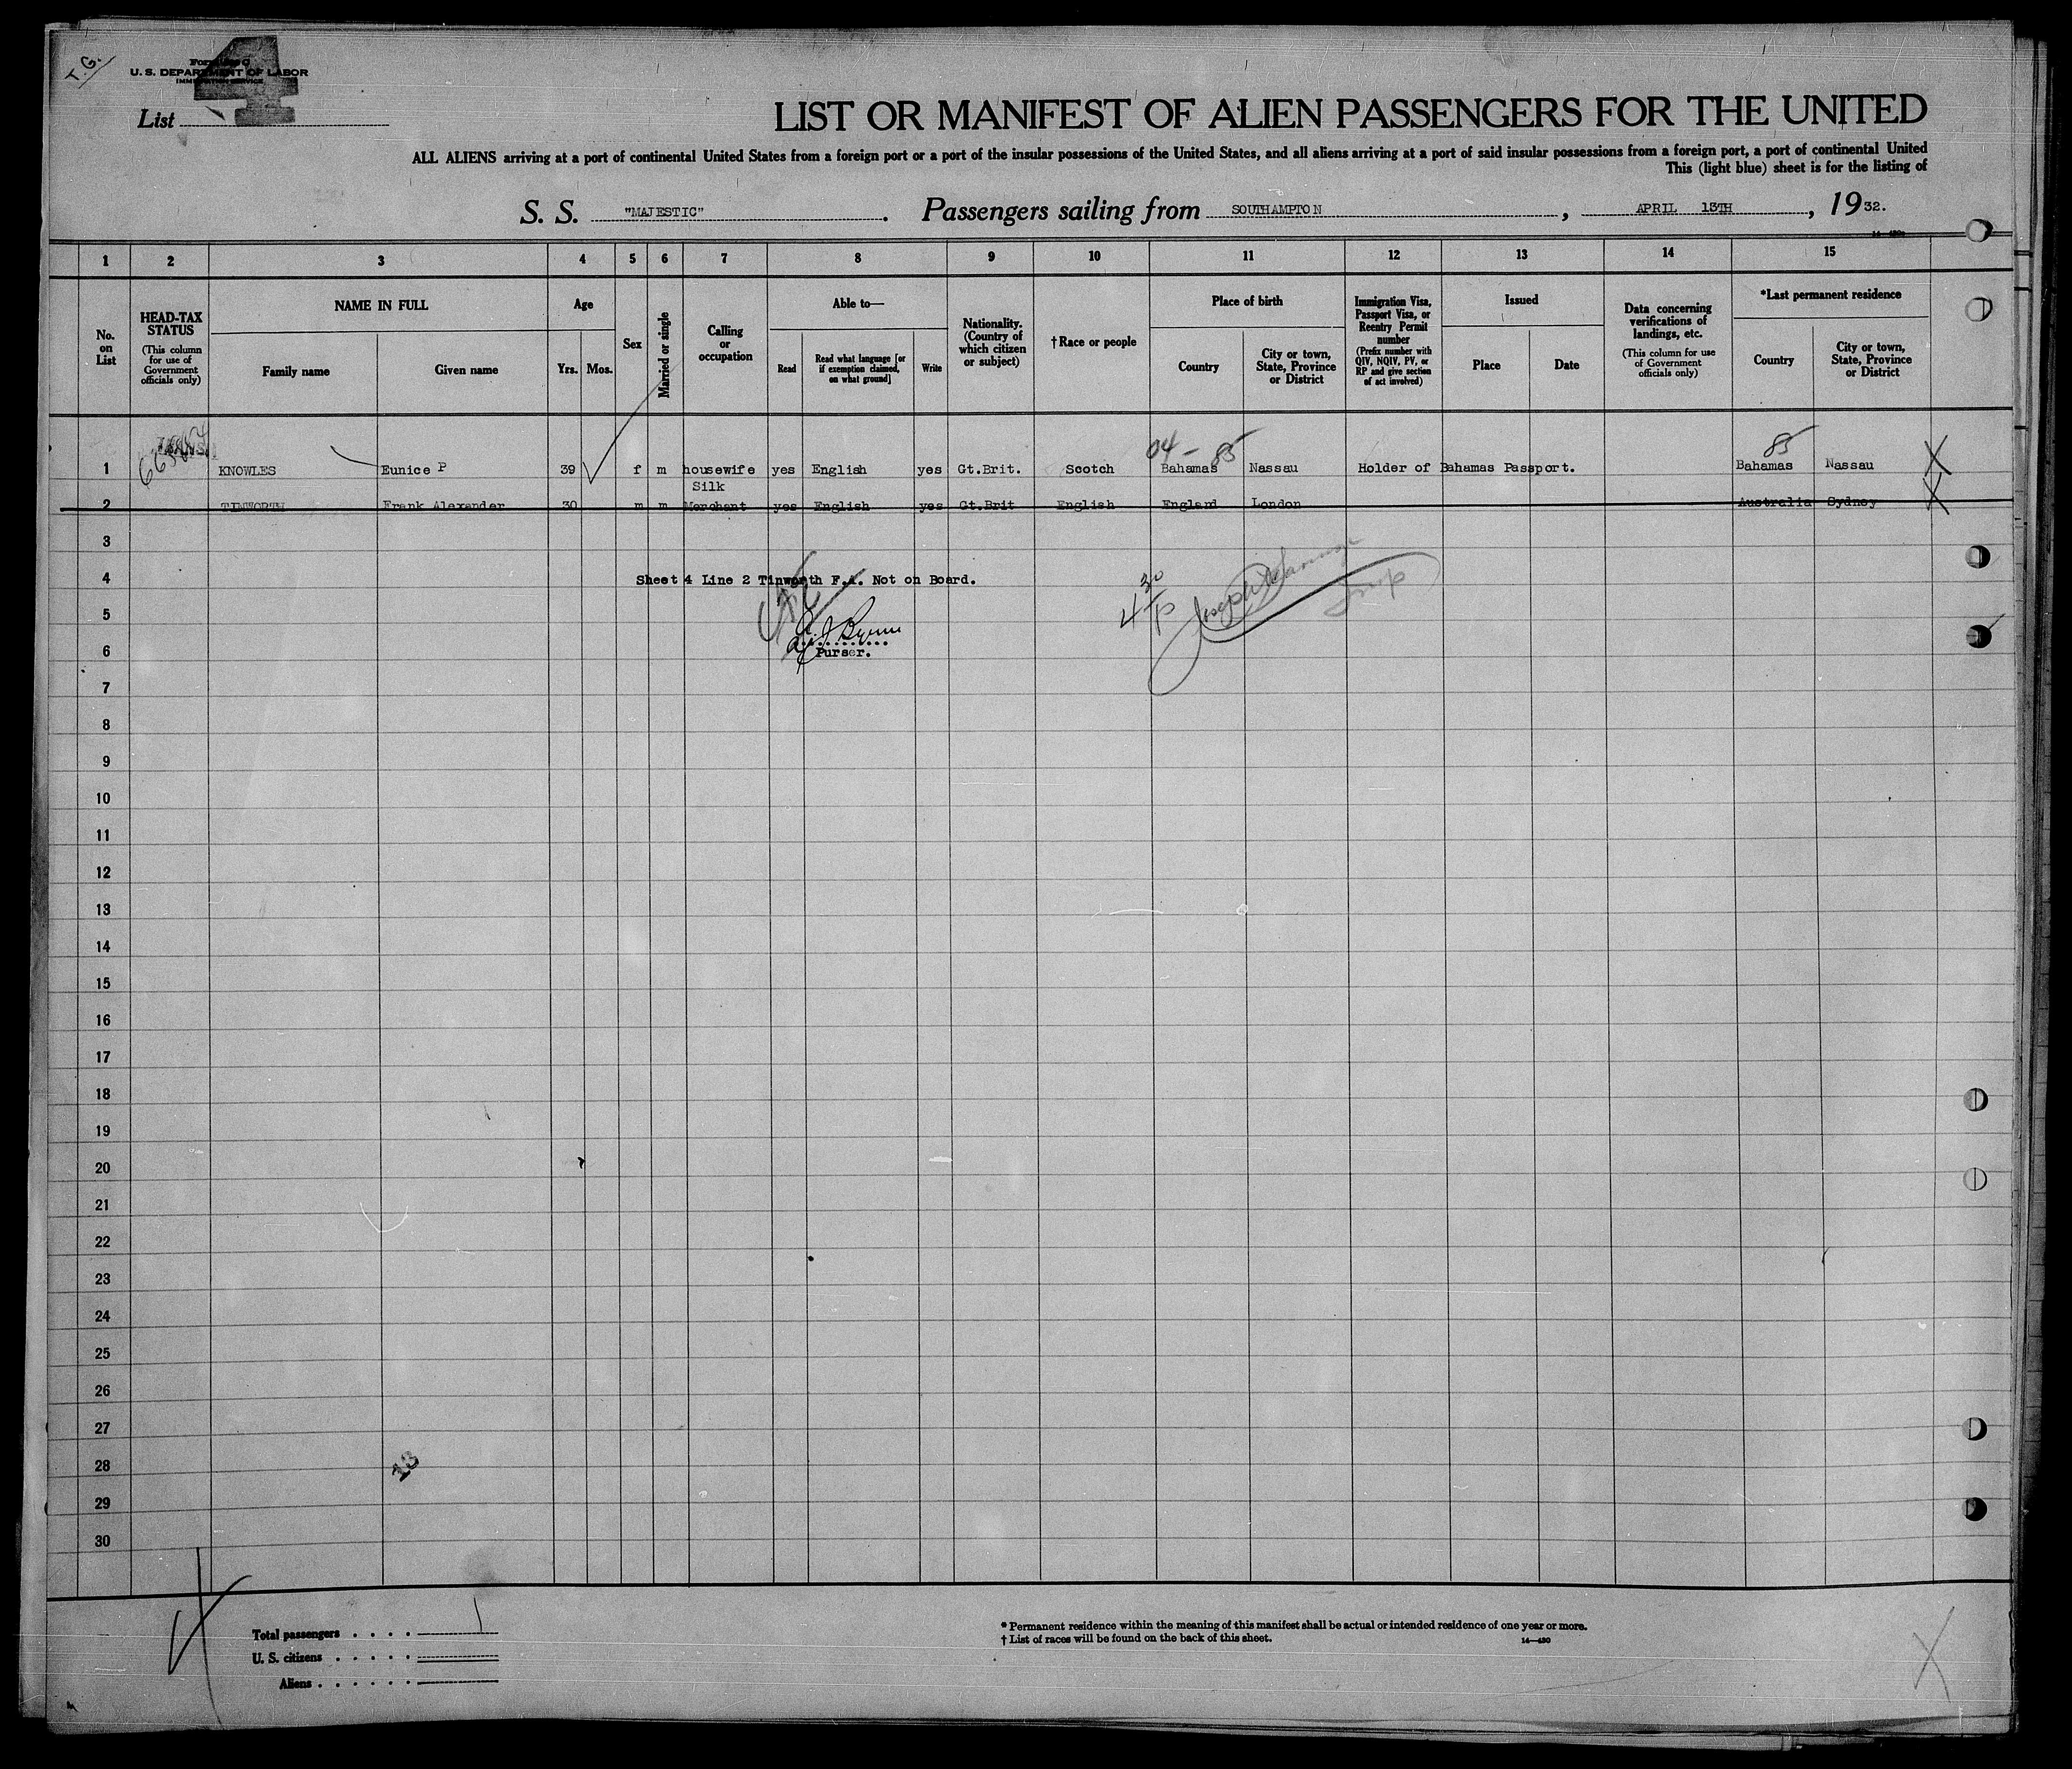 T.G.
4
U. S. DEPARTMENT OF LABOR
IMMIGRATION SERVICE
List
LIST OR MANIFEST OF ALIEN PASSENGERS FOR THE UNITED
ALL ALIENS arriving at a port of continental United States from a foreign port or a port of the insular possessions of the United States, and all aliens arriving at a port of said insular possessions from a foreign port, a port of continental United
This (light blue) sheet is for the listing of
S. S. "MAJESTIC". Passengers sailing from SOUTHAMPTON, APRIL 13TH, 1932.
14—430
1 2 3 4 5 6 7 8 9 10 11 12 13 14 15
No. on List
HEAD-TAX STATUS
(This column for use of Government officials only)
NAME IN FULL
Family name
Given name
Age
Yrs.
Mos.
Sex
Married or single
Calling or occupation
Able to—
Read
Read what language [or if exemption claimed, on what ground]
Write
Nationality. (Country of which citizen or subject)
† Race or people
Place of birth
Country
City or town, State, Province or District
Immigration Visa, Passport Visa, or Reentry Permit number
(Prefix number with QIV, NQIV, PV, or RP and give section of act involved)
Issued
Place
Date
Data concerning verifications of landings, etc.
(This column for use of Government officials only)
*Last permanent residence
Country
City or town, State, Province or District
04 – 85
85
1 KNOWLES Eunice P 39 f m housewife yes English yes Gt.Brit. Scotch Bahamas Nassau Holder of Bahamas Passport. Bahamas Nassau X
Silk
2 TINWORTH Frank Alexander 30 m m Merchant yes English yes Gt.Brit English England London Australia Sydney X
3
4 Sheet 4 Line 2 Tinworth F.A. Not on Board.
4 30/P
5
6 Purser.
7
8
9
10
11
12
13
14
15
16
17
18
19
20
21
22
23
24
25
26
27
28
29
30
13
Total passengers . . . . 1
U. S. citizens . . . . .
Aliens . . . . . .
* Permanent residence within the meaning of this manifest shall be actual or intended residence of one year or more.
† List of races will be found on the back of this sheet.
14—430
X